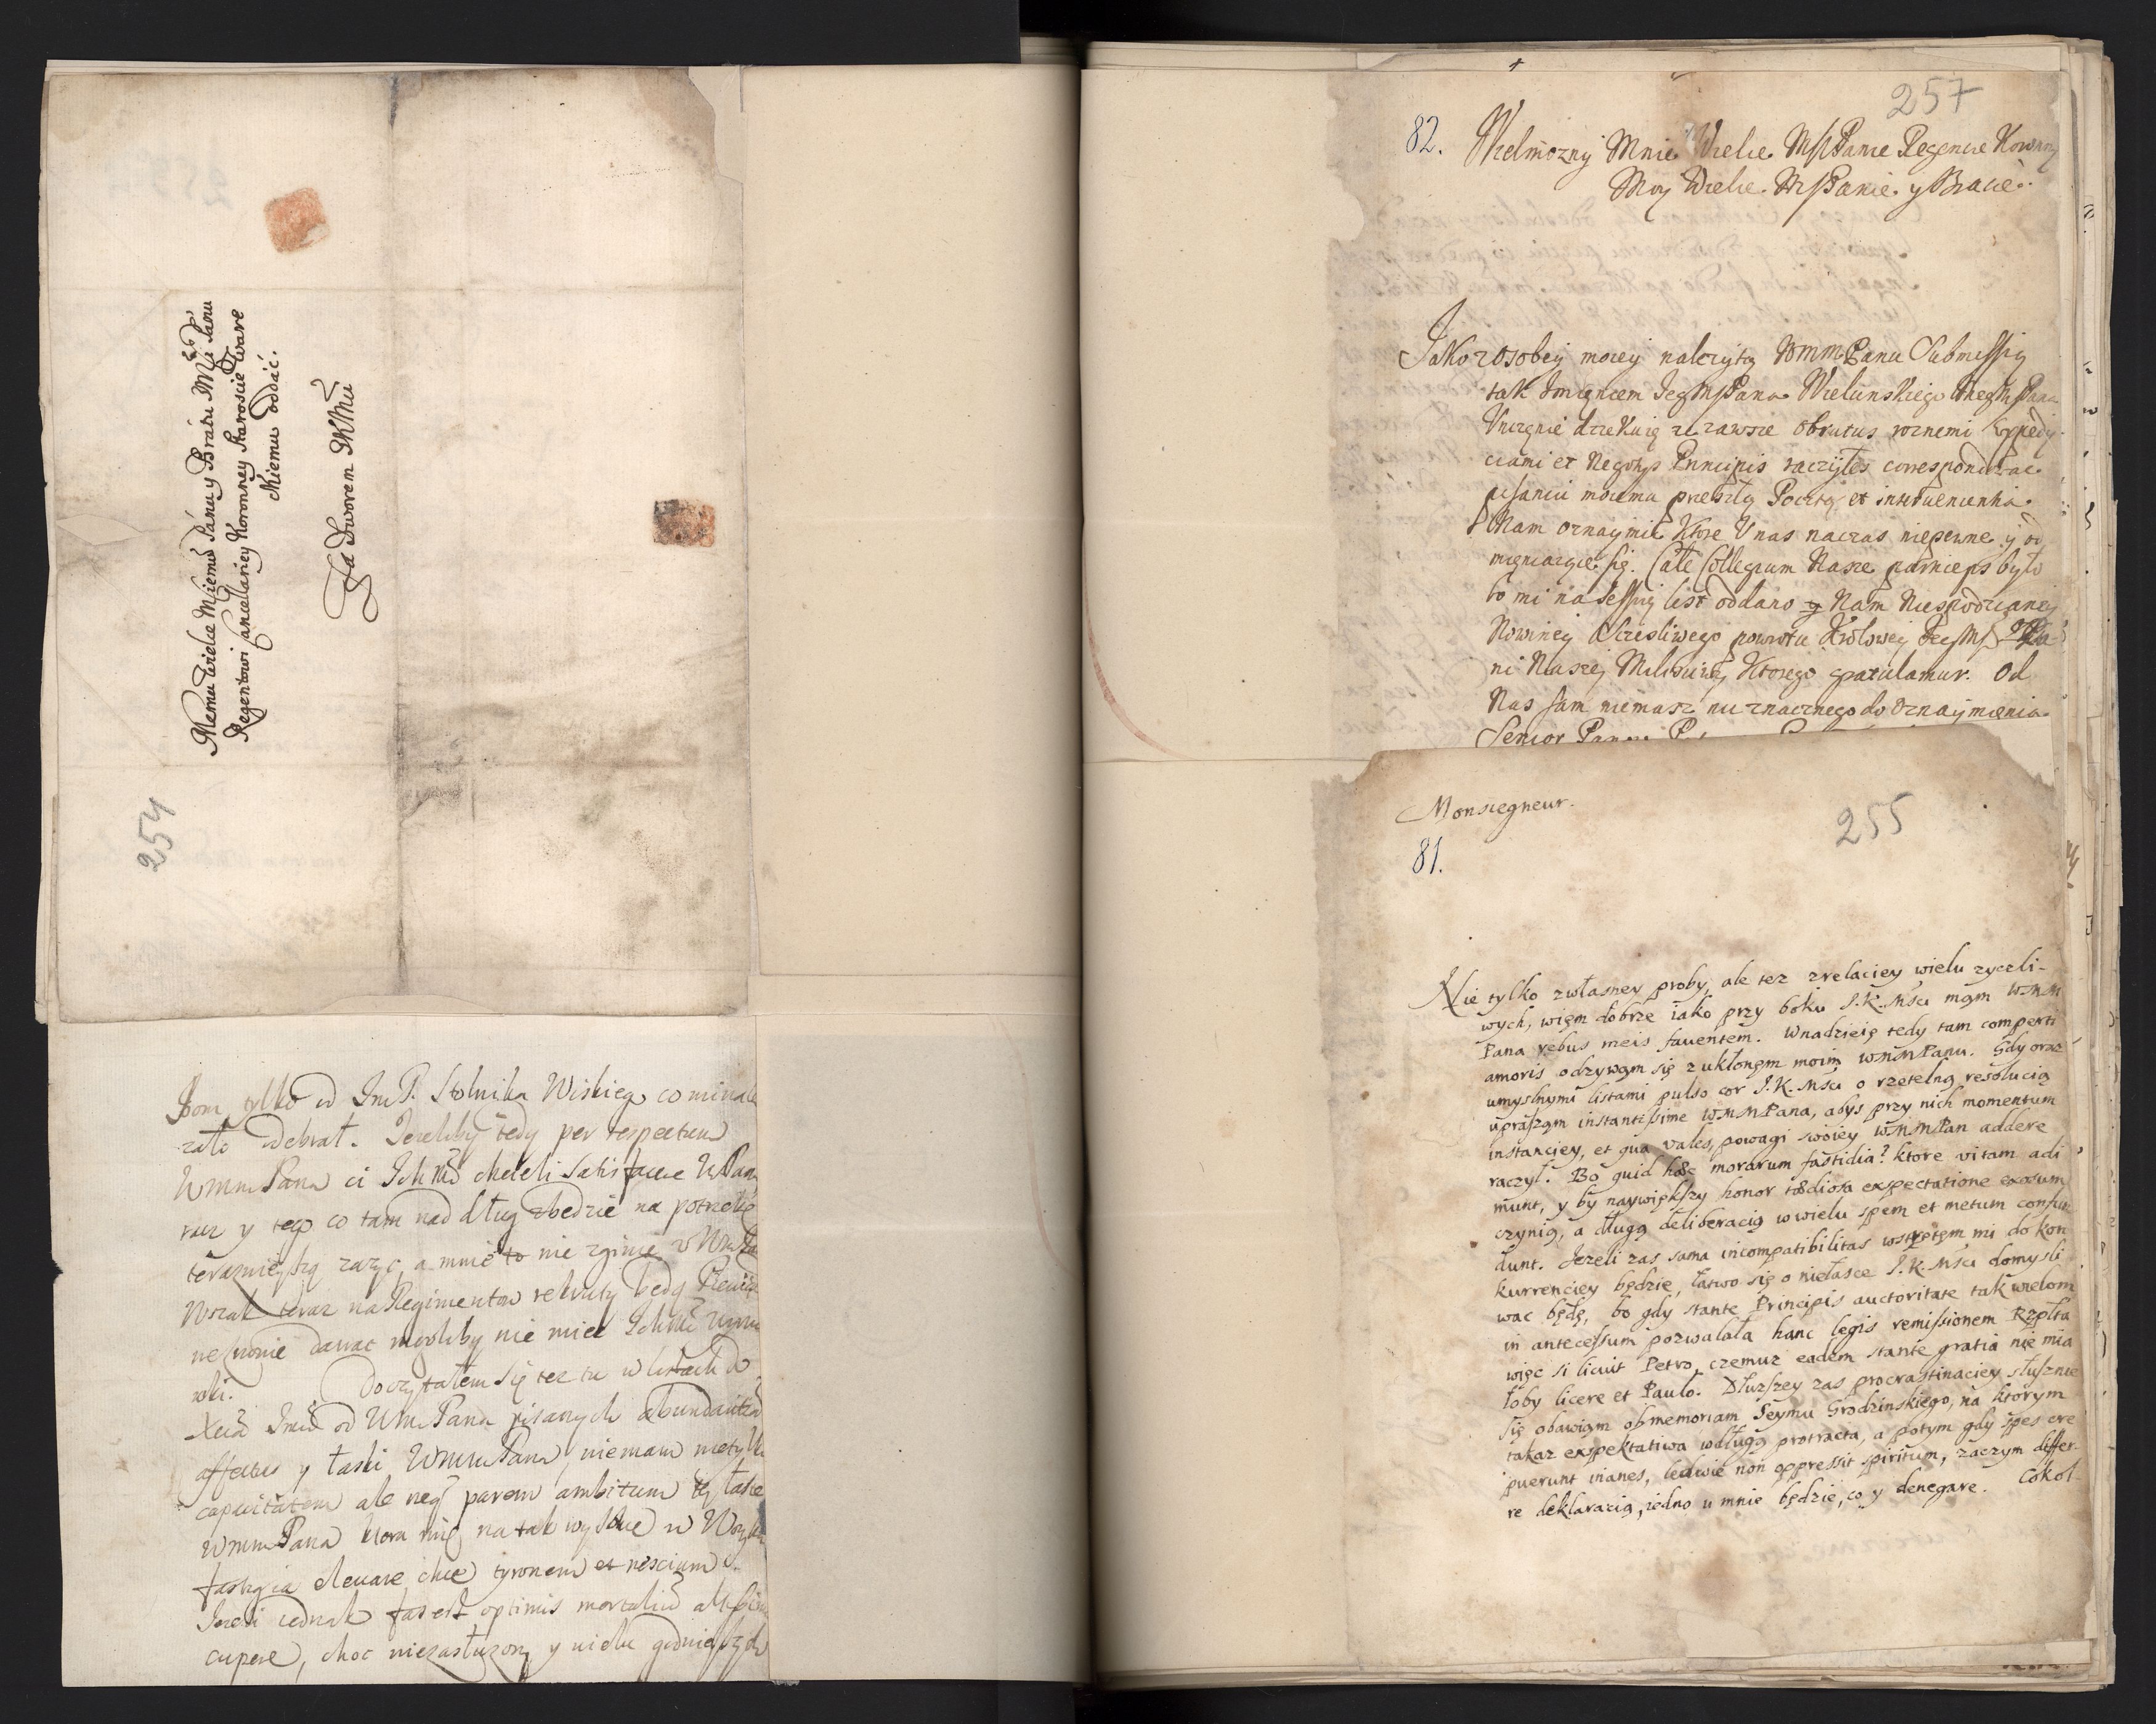 Memu Wielce Mᶜⁱemu Panu y Bratu JMᶜⁱ Panu
Regentowi Cancellariey Koronney Staroscie
Memu oddać.
Za Dworem JKMći
254
tylko od JmP. Stolnika Wiskieg° co mi
odebrał. Jezeliby tedy per respectum
WmmPana ci Ich Mć chcieli satisfacere
y tego co tam nad dług będzie na potrzebę
teraznieyszą zazyc, a mnie to nie zginie
Wszak teraz na Regimentow rekruty będą
dawac mogliby nie miec Ich Mć
Doczytałem się tez tu w listach do
Xcia Jmći od WmPana pisanych abundantia
affectus y łaski WmmPana, niemam nietylko
capacitatem ale neq₃ parem ambitum tey łasce
WmmPana ktora mię na tak wysokie
fastigia elevare chce tyronem et nescium.
Jezeli iednak fas est optimis mortaliu altissima
cupere, choc niezasłuzony y wielu godnieyszych
257
82.
Wielmozny Mnie Wielce MsPanie Regencie Koronny
Moy Wielce MsPanie y Bracie.
Jako z osobey moiey nalezytą WmmPanu Submissią
tak Imieniem JegMsPana Wielunskiego MegMsPana
Unizenie dziekuię ze zawsze obrutus roznemi expedy-
ciami et Negotys Principis raczyłes correspondowac
pisaniu moiemu przeszłą Pocztą et interueniencia
Nam oznaymic Ktore U nas naczas niepewne y od
mięniaiące się. Całe Collegium Nasze particeps było
bo mi na sessyi list oddano y Nam Niespodzianey
Nowiney Sczesliwego powrotu Krolowey JeyMs Pa
ni Naszey Miłosciwey Ktorego gratulamur. Od
Nas sam niemasz nic znacznego do oznaymienia
Senior
Monseigneur.
255
81.
Nie tylko z własney proby, ale tez z relaciey wielu zyczli-
wych, więm dobrze iako przy boku J.K.Mści mąm WMM
Pana rebus meis fauentem. W nadzieię tedy tam comperti
amoris odzywąm się z ukłonęm moim WMMPanu. Gdy oraz
umyslnymi listami pulso cor J.K.Mści o rzetelną resolucią
uprasząm instantissime WMMPana, abys przy nich momentum
instanciey, et qua vales, powagi swoiey WMMPan addere
raczył. Bo quid hæc morarum fastidia? ktore vitam adi
munt, y by naywiększy honor tædiosa expectatione exosum
czynią, a długą deliberacią w wielu spem et metum confun
dunt. Jezeli zas sama incompatibilitas wstrętęm mi do kon
kurrenciey będzie, łatwo się o niełasce J.K.Mści domysli
wac będę, bo gdy stante Principis auctoritate tak wielom
in antecessum pozwalała hanc legis remissionem Rzpłta
więc si licuit Petro, czemuz eadem stante gratia nie mia
łoby licere et Paulo. Dłuzszey zas procrastinaciey słusznie
się obawiąm ob memoriam Seymu Grodzinskiego, na ktorym
takaz expektatiwa w długą protracta, a potym gdy spes cre
puerunt inanes, ledwie non oppressit spiritum, zaczym differ-
re deklaracią, iedno u mnie będzie, co y denegare. Cokol-